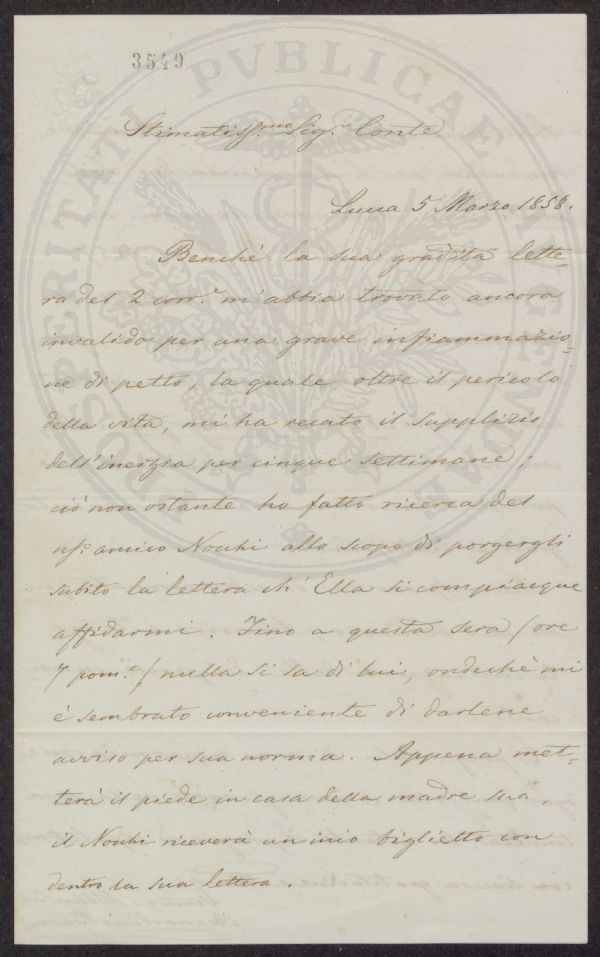 3549
PROSPERITATI PVBLICAE AVGENDAE
Stimatiss.mo Sig.r Conte
Lucca 5 Marzo 1858.
Benchè la sua gradita lette-
ra del 2 corr.e m'abbia trovato ancora
invalido per una grave infiammazio-
ne di petto, la quale, oltre il pericolo
della vita, mi ha recato il supplizio
dell'inerzia per cinque settimane;
ciò non ostante ho fatto ricerca del
nṣ.o amico Nochi allo scopo di porgergli
subito la lettera ch'Ella si compiacque
affidarmi. Fino a questa sera (ore
7 pom.e) nulla si sa di lui, ondechè mi
è sembrato conveniente di darlene
avviso per sua norma. Appena met-
terà il piede in casa della madre sua,
il Nochi riceverà un mio biglietto con
dentro la sua lettera.